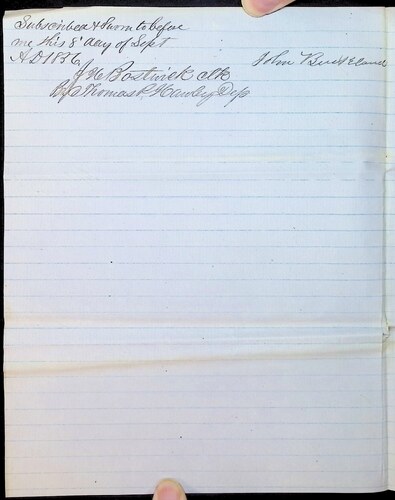 Subscribed & Sworn to before
me this 8" day of Sept
A.D 1836
John
J H Bostwick clk
By Thomas P. Hawley Dep